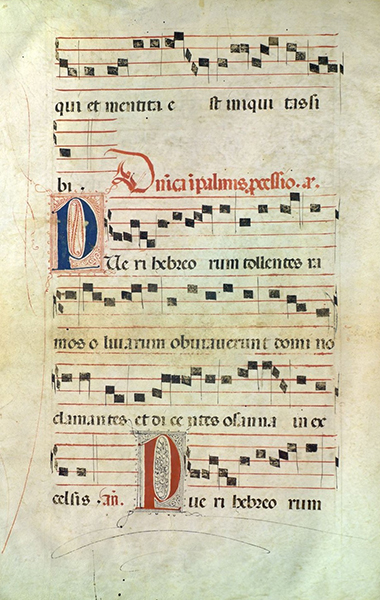 qui et mentita e st iniqui tas si
bi. Dnica i palmis, pcessio. añ.
PUe ri hebreo rum tollentes ra
mos o liuarum obuiauerunt domi no
clamantes et di ce ntes osanna in ex
celsis. añ. Pue ri hebreo rum